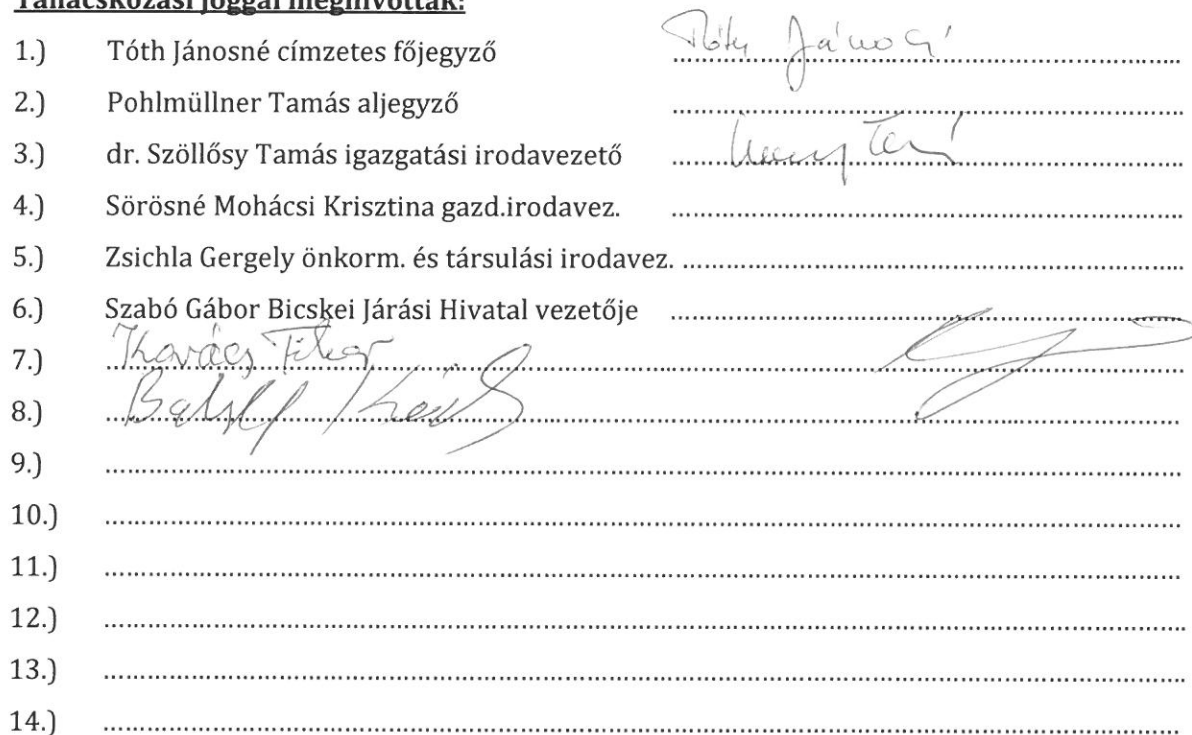 Tanácskozási joggal meghívottak:
1.) Tóth Jánosné címzetes főjegyző Tóth Jánosné
2.) Pohlmüllner Tamás aljegyző
3.) dr. Szöllősy Tamás igazgatási irodavezető
4.) Sörösné Mohácsi Krisztina gazd.irodavez.
5.) Zsichla Gergely önkorm. és társulási irodavez.
6.) Szabó Gábor Bicskei Járási Hivatal vezetője
7.) Kovács
8.)
9.)
10.)
11.)
12.)
13.)
14.)